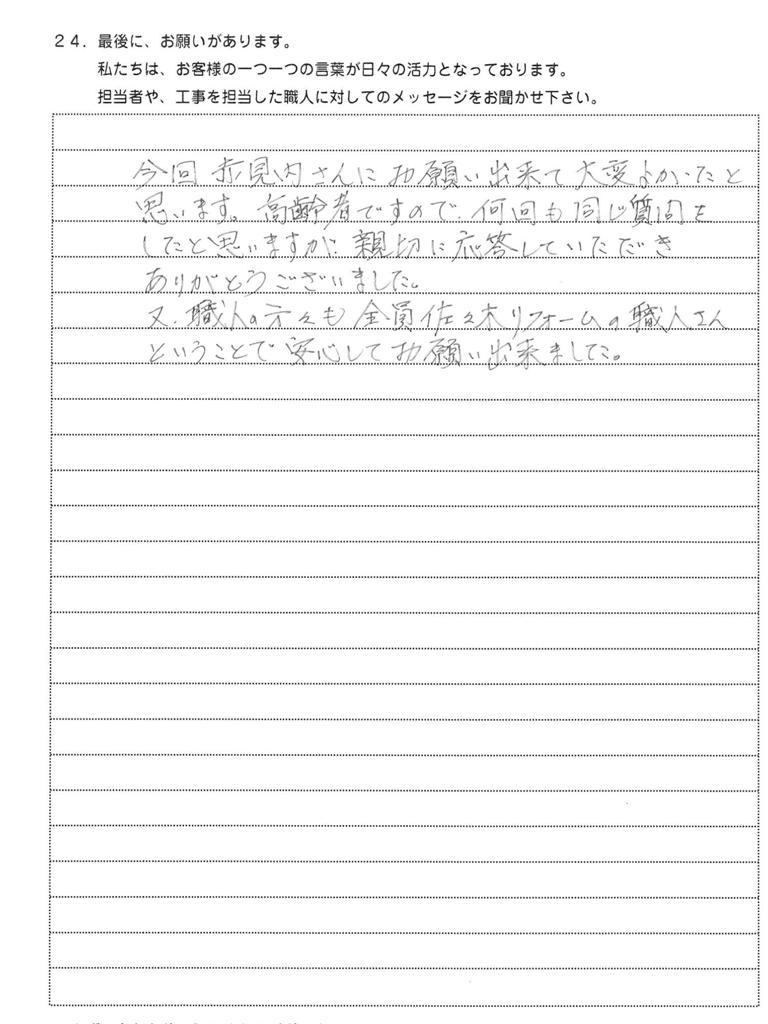 24. 最後に、お願いがあります。
私たちは、お客様の一つ一つの言葉が日々の活力となっております。
担当者や、工事を担当した職人に対してのメッセージをお聞かせ下さい。
今回 赤見内さんにお願い出来て大変よかったと
思います。高齢者ですので、何回も同じ質問を
したと思いますが、親切に応答していただき
ありがとうございました。
又、職人の方々も全員佐々木リフォームの職人さん
ということで安心してお願い出来ました。